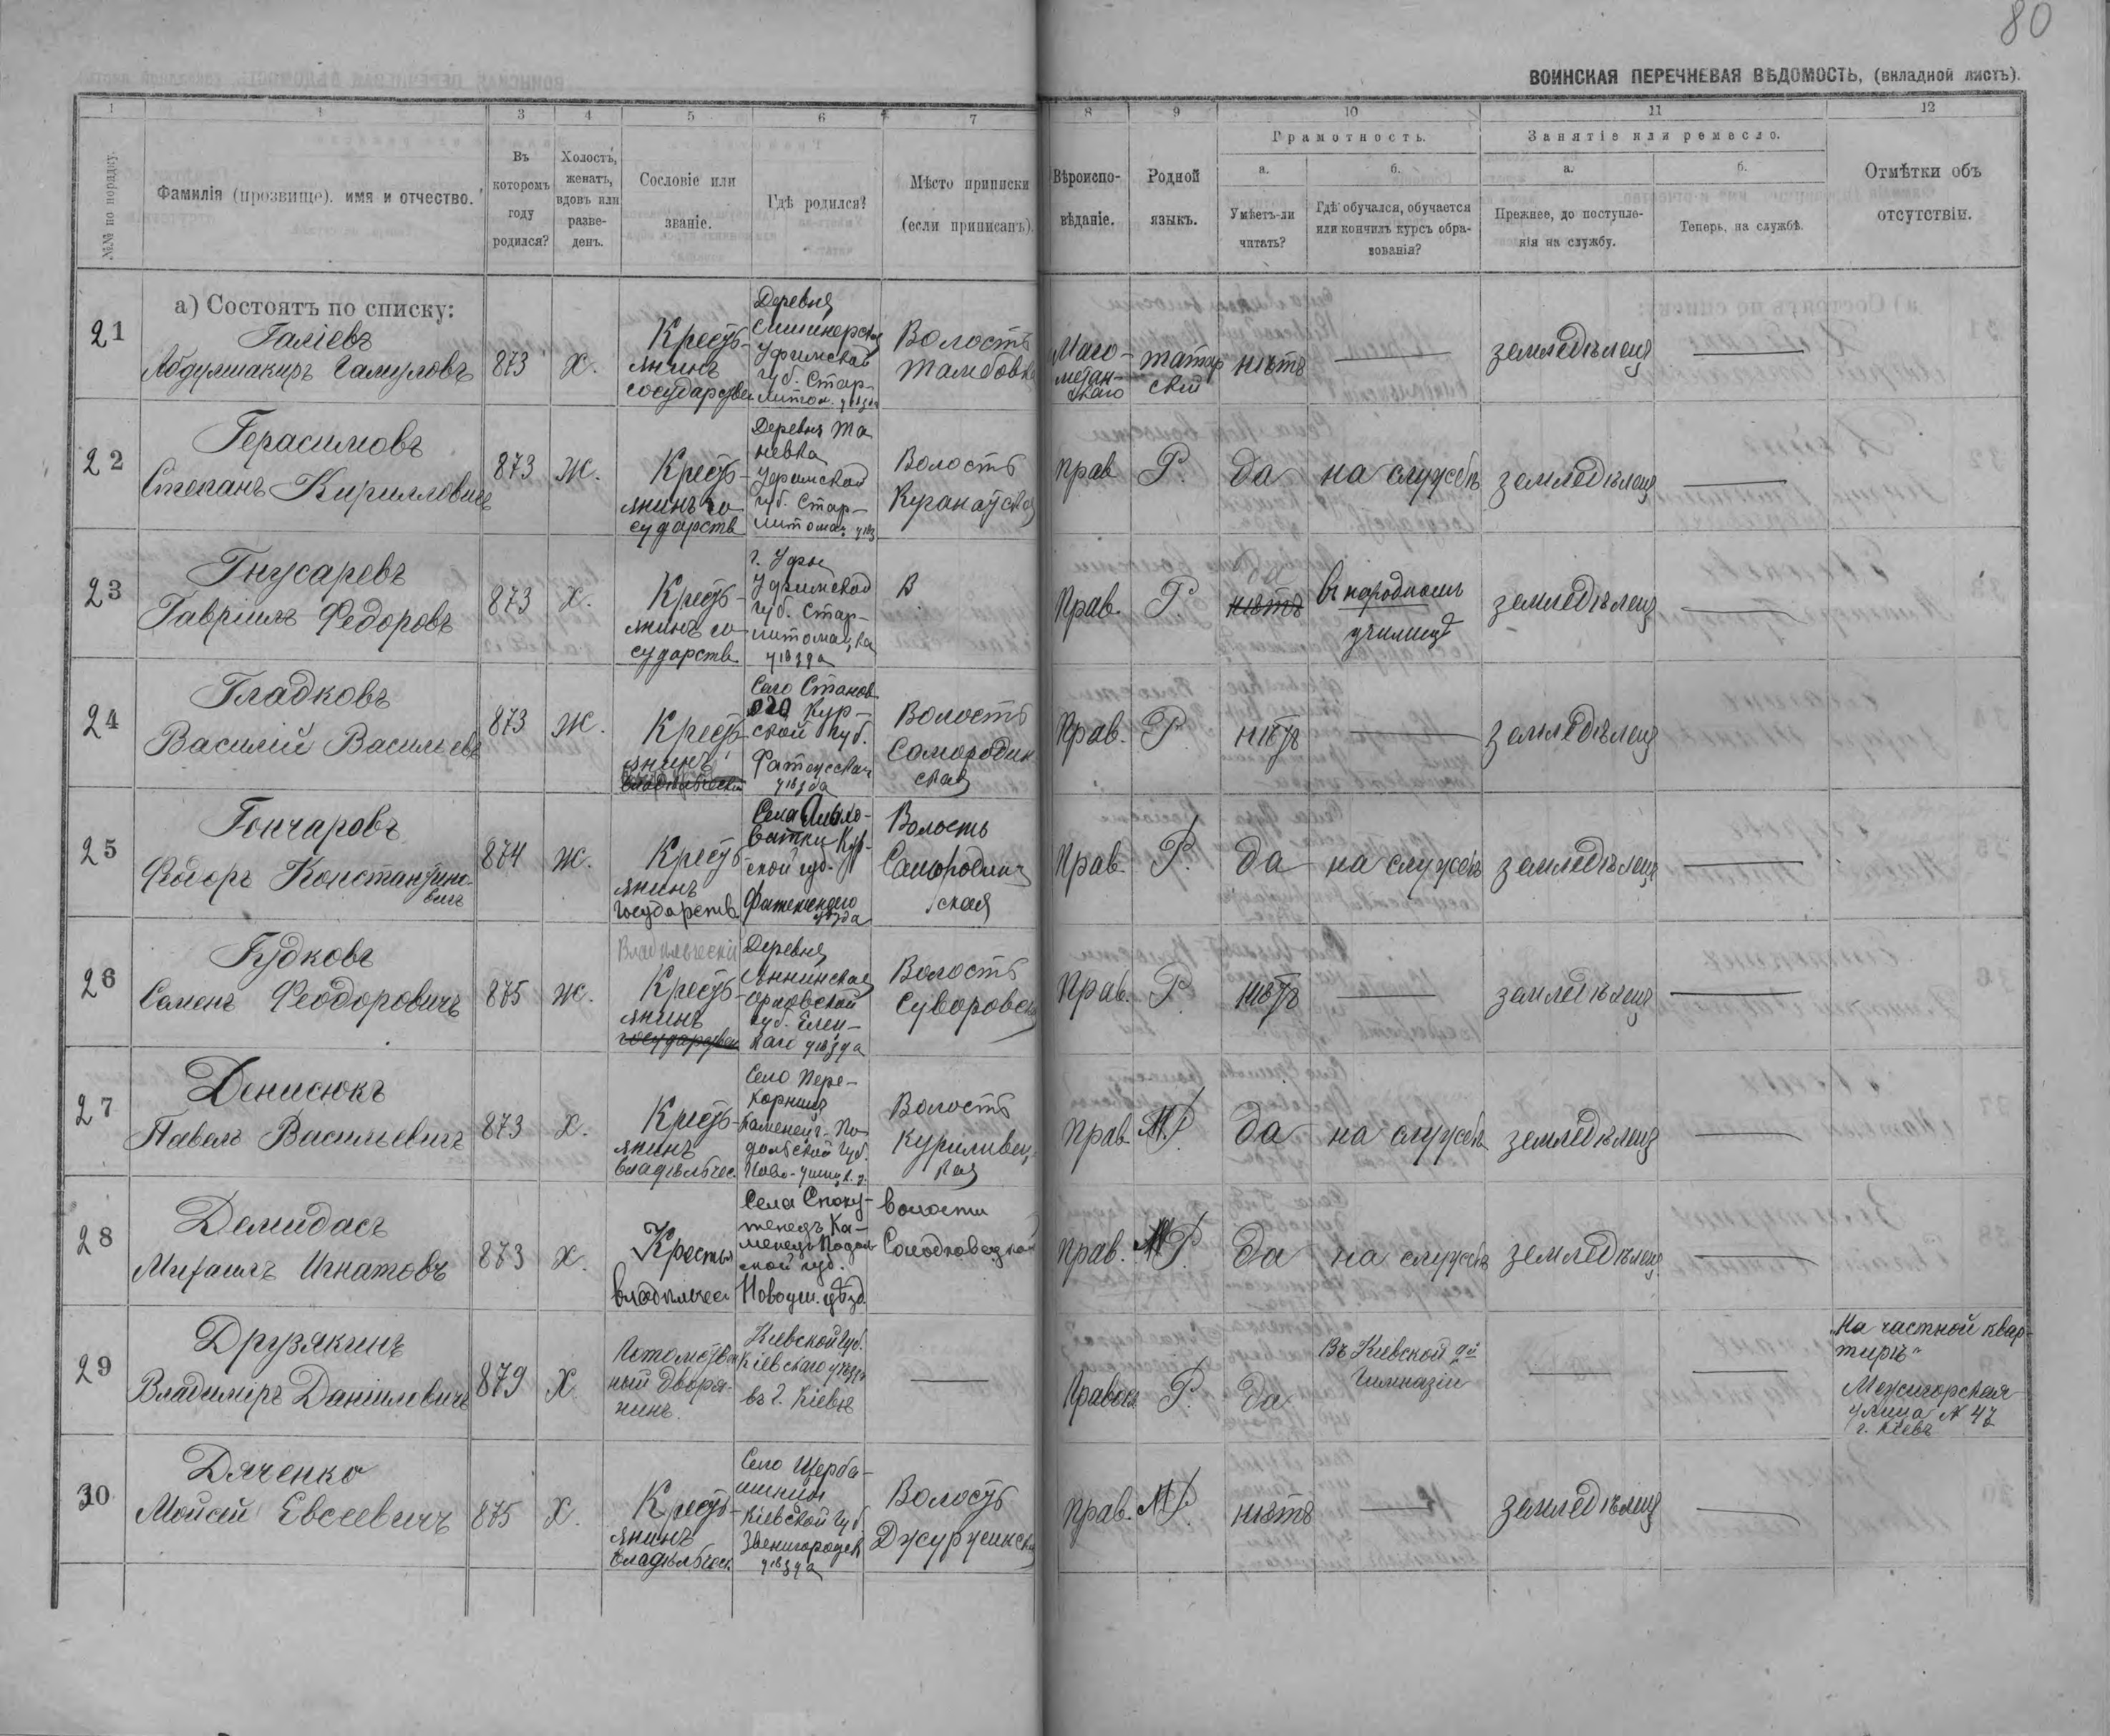 80
ВОИНСКАЯ ПЕРЕЧНЕВАЯ ВѢДОМОСТЬ, (вкладной листъ).
1 3 4 5 6 7 8 9 10 11 12
№№ по порядку.
Фамилія (прозвище). имя и отчество.
Въ которомъ году родился?
Холостъ, женатъ, вдовъ или разве-денъ.
Сословіе или званіе.
Гдѣ родился?
Мѣсто приписки (если приписанъ).
Вѣроиспо-вѣданіе.
Родной языкъ.
Грамотность.
а. Умѣетъ-ли читать?
б. Гдѣ обучался, обучается или кончилъ курсъ обра-зованія?
Занятіе или ремесло.
а. Прежнее, до поступле-нія на службу.
б. Теперь, на службѣ.
Отмѣтки объ отсутствіи.
а) Состоятъ по списку:
21
Галіевъ
873
Х.
Кресть-
янинъ
государствен
Деревня
Уфимской
губ. Стар-
Волость
Тамбовка
Маго-
метан-
скаго
татар
скій
нѣтъ
—
земледѣлецъ
—
22
Герасимовъ
Степанъ Кирилловичъ
873
Ж.
Кресть-
янинъ го-
сударств
Деревня Та
невка
Уфимской
губ. Стар-
литомак. уѣз
Волость
прав
Р.
да
на службѣ
земледѣлецъ
—
23
Гнусаревъ
Гавріилъ Федоровъ
873
Х.
Кресть-
янинъ го-
сударств.
г. Уфы
Уфимской
губ. Стар-
уѣзда
В
Прав.
Р.
да
нѣтъ
въ народномъ
училищѣ
земледѣлецъ
—
24
Гладковъ
Василій Васильевъ
873
Ж.
Кресть-
янинъ
Село Станов
ого Кур-
ской губ.
уѣзда
Волость
Самородин
ская
Прав.
Р.
нѣтъ
—
земледѣлецъ
25
Гончаровъ
Федоръ Константино-
вичъ
874
Ж.
Кресть
янинъ
Государств.
Села
Кур-
ской губ.
уѣзда
Волость
Самородин
ская
Прав.
Р.
да
на службѣ
земледѣлецъ
—
26
Гудковъ
Семенъ Феодоровичъ
875
Ж.
Владѣльческій
Кресть-
янинъ
государствен
Деревня
Орловской
губ. Елец-
каго уѣзда
Волость
Суворовск
Прав.
Р.
нѣтъ
—
земледѣлецъ
—
27
Денисюкъ
Павелъ Васильевичъ
873
Х.
Кресть-
янинъ
владѣльчес.
Село Пере-
Каменец-По-
дольской губ.
Волость
Куриловец
кая
Прав.
М.Р.
да
на службѣ
земледѣлецъ
—
28
Демидасъ
Михаилъ Игнатовъ
873
Х.
Крестья
владѣльчес
Села
Ка-
менецъ Подоль
ской губ.
Новоуш. уѣзд
волости
Солодковецкой
Прав.
М.Р.
да
на службѣ
земледѣлецъ
—
29
Друзякинъ
Владиміръ Даніиловичъ
879
Х
Потомствен
ный дворя-
нинъ.
Кіевской губ.
Кіевскаго уѣзда
въ г. Кіевѣ
—
Правосл
Р.
да
Въ Кіевской
Гимназіи
—
—
„На частной квар-
тирѣ"
Межигорская
улица № 47
г. Кіевъ
30
Дяченко
Мойсей Евсеевичъ
875
Х.
Кресть-
янинъ
владѣльческ.
Село Щерба-
шинцы
Кіевской губ
Звенигородск
уѣзда
Волость
Джуржинск
Прав.
М.Р.
нѣтъ
—
земледѣлецъ
—